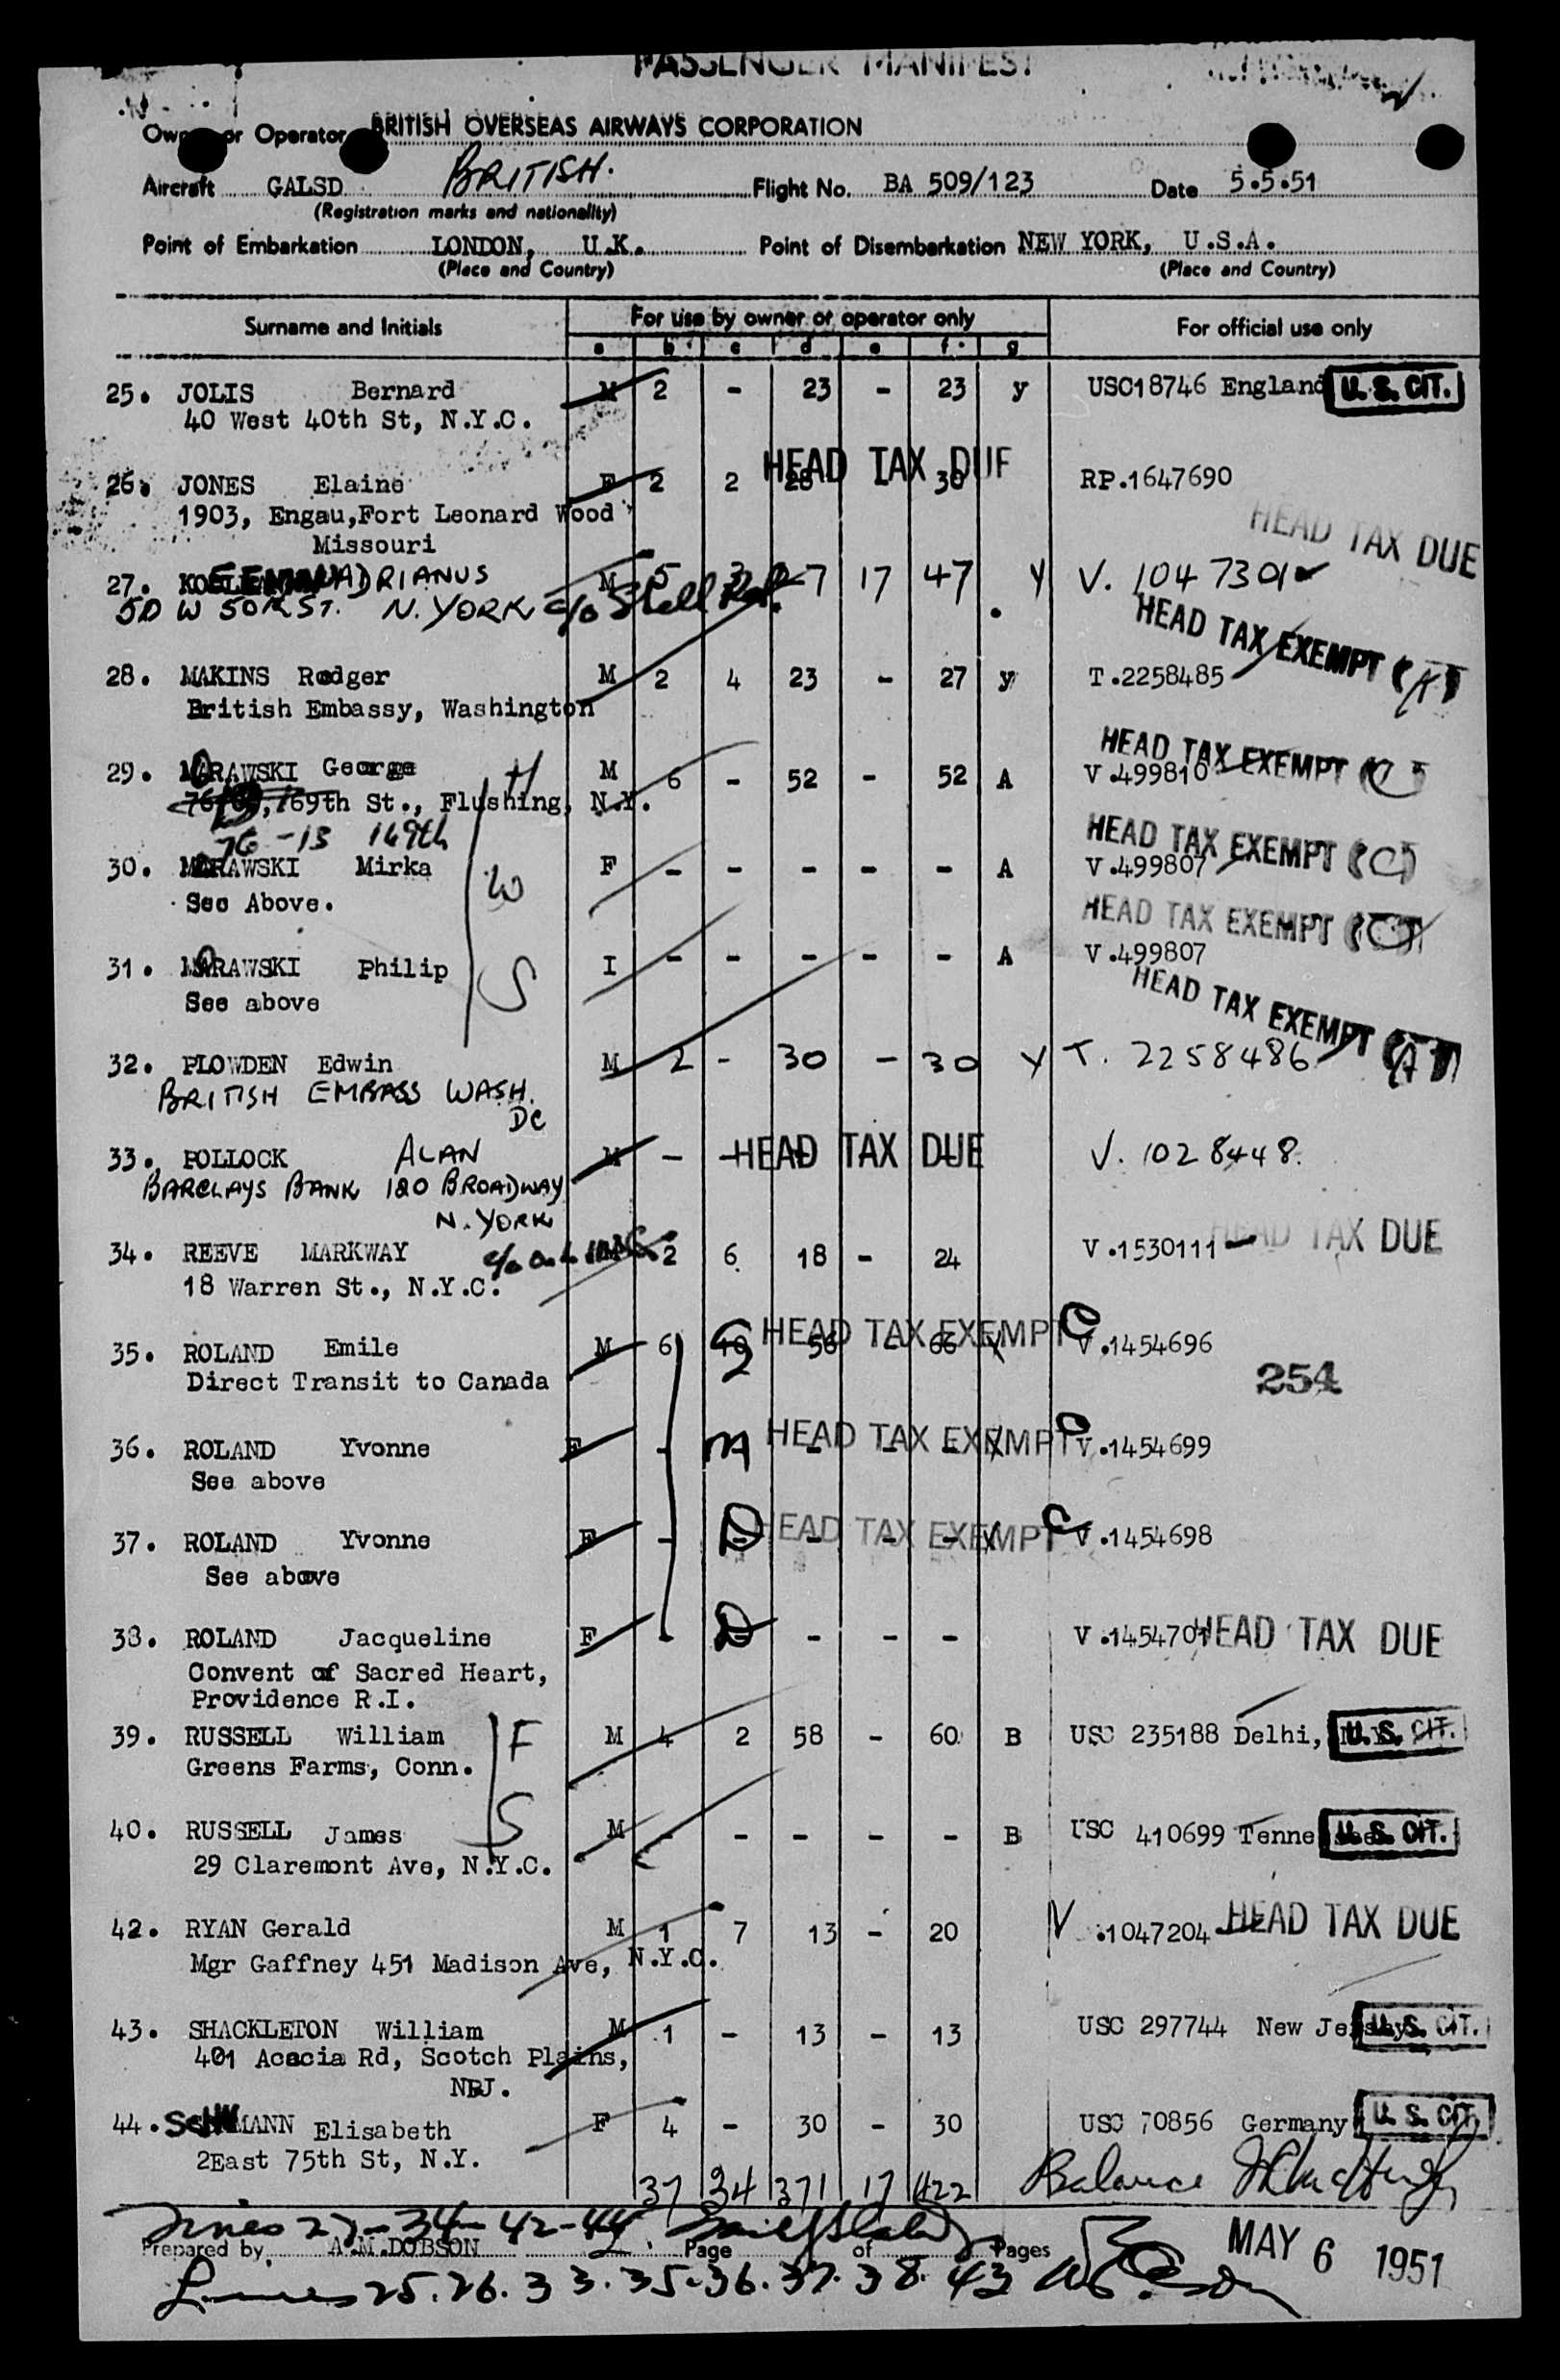 PASSENGER MANIFEST
Owner or Operator BRITISH OVERSEAS AIRWAYS CORPORATION
Aircraft GALSD BRITISH. Flight No. BA 509/123 Date 5.5.51
(Registration marks and nationality)
Point of Embarkation LONDON, U.K. Point of Disembarkation NEW YORK, U.S.A.
(Place and Country) (Place and Country)
Surname and Initials For use by owner or operator only For official use only
a b c d e f g
25. JOLIS Bernard M 2 - 23 - 23 y USC18746 England U. S. CIT.
40 West 40th St, N.Y.C.
HEAD TAX DUE
26. JONES Elaine F 2 2 28 - 30 RP.1647690
1903, Engau,Fort Leonard Wood
Missouri
HEAD TAX DUE
27. ADRIANUS M 5 3 27 17 47 y V. 1047301
50 W 50th ST. N. YORK c/o Shell
HEAD TAX EXEMPT (A)
28. MAKINS Rodger M 2 4 23 - 27 y T.2258485
British Embassy, Washington
HEAD TAX EXEMPT (C)
29. MORAWSKI George H M 6 - 52 - 52 A V.499810
169th St., Flushing, N.Y.
76-13 169th
HEAD TAX EXEMPT (C)
30. MORAWSKI Mirka W F - - - - - A V.499807
See Above.
HEAD TAX EXEMPT (C)
31. MORAWSKI Philip S I - - - - - A V.499807
See above
HEAD TAX EXEMPT (A)
32. PLOWDEN Edwin M 2 - 30 - 30 y T. 2258486
BRITISH EMBASS WASH.
DC
33. POLLOCK ALAN M - - HEAD TAX DUE V. 1028448.
BARCLAYS BANK 120 BROADWAY
N. YORK
34. REEVE MARKWAY c/o 2 6 18 - 24 V.1530111 HEAD TAX DUE
18 Warren St., N.Y.C.
HEAD TAX EXEMPT C
35. ROLAND Emile M 6 10 56 - 66 V.1454696
Direct Transit to Canada 254
36. ROLAND Yvonne F - M HEAD TAX EXEMPT C V.1454699
See above
37. ROLAND Yvonne F - D HEAD TAX EXEMPT C V.1454698
See above
38. ROLAND Jacqueline F - D - - - V.1454701 HEAD TAX DUE
Convent of Sacred Heart,
Providence R.I.
39. RUSSELL William F M 4 2 58 - 60 B USC 235188 Delhi, U. S. CIT.
Greens Farms, Conn.
40. RUSSELL James S M - - - - - B USC 410699 Tennessee U. S. CIT.
29 Claremont Ave, N.Y.C.
42. RYAN Gerald M 1 7 13 - 20 V .1047204 HEAD TAX DUE
Mgr Gaffney 451 Madison Ave, N.Y.C.
43. SHACKLETON William M 1 - 13 - 13 USC 297744 New Jersey U. S. CIT.
401 Acacia Rd, Scotch Plains,
NBJ.
44. MANN Elisabeth F 4 - 30 - 30 USC 70856 Germany U. S. CIT.
2East 75th St, N.Y.
37 34 371 17 422 Balance
Lines 27-34-42-44.
Prepared by A.M.DOBSON Page of Pages MAY 6 1951
Lines 25.26.33.35-36.37.38.43